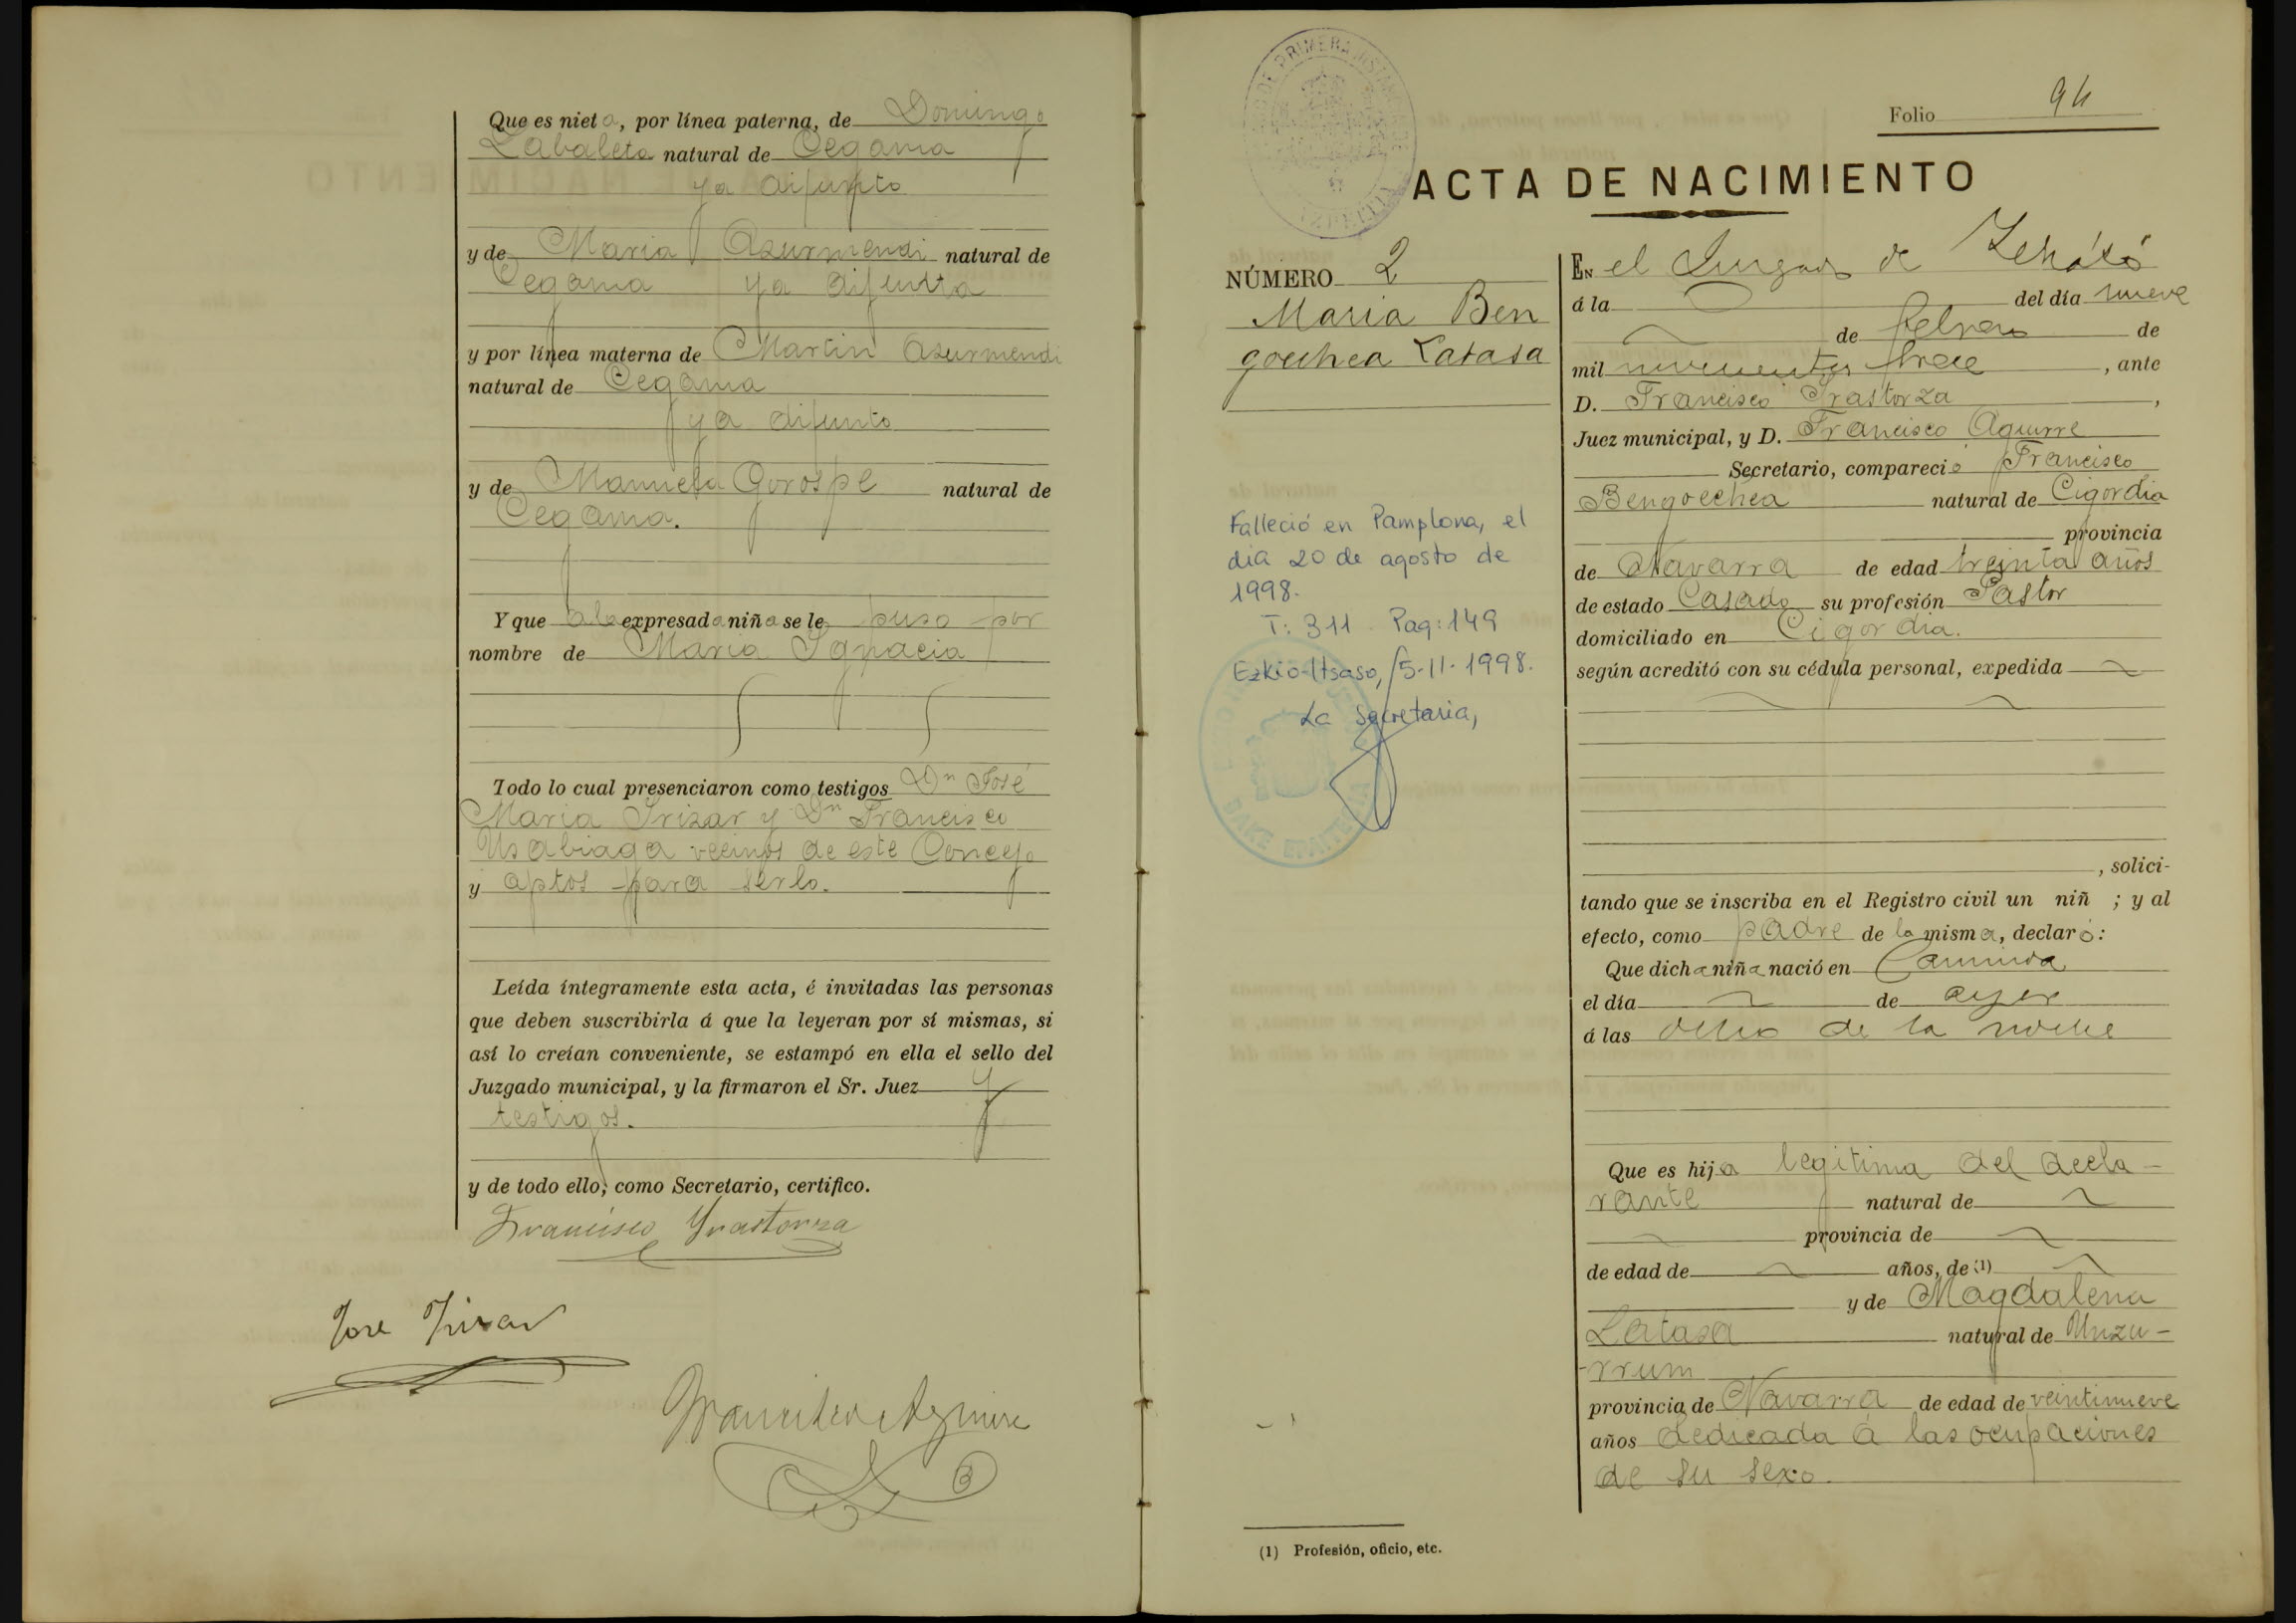 Que es nieta, por línea paterna, de Domingo
Zabaleta natural de Cegama
ya difunto
y de Maria Azurmendi natural de
Cegama ya difunta
y por línea materna de Martin Azurmendi
natural de Cegama
ya difunto
y de Manuela Gorospe natural de
Cegama.
Y que a la expresada niña se le puso por
nombre de Maria Ignacia
Todo lo cual presenciaron como testigos Dn José
Maria Irizar y Dn Francisco
Usabiaga vecinos de este Concejo
y aptos para serlo.
Leída íntegramente esta acta, é invitadas las personas
que deben suscribirla á que la leyeran por sí mismas, si
así lo creían conveniente, se estampó en ella el sello del
Juzgado municipal, y la firmaron el Sr. Juez y
testigos.
y de todo ello, como Secretario, certifico.
Francisco Yrastorza
Jose Irizar
Francisco Aguirre
Folio 94
ACTA DE NACIMIENTO
NÚMERO 2
Maria Ben
goechea Latasa
Falleció en Pamplona, el
día 20 de agosto de
1998.
T: 311 Pag: 149
Ezkio-Itsaso, 5-11-1998.
La Secretaria,
En el Juzgado de
á la del día nueve
de febrero de
mil novecientos trece, ante
D. Francisco Irastorza,
Juez municipal, y D. Francisco Aguirre
Secretario, compareció Francisco
Bengoechea natural de Cigordia
provincia
de Navarra de edad treinta años
de estado Casado su profesión Pastor
domiciliado en Cigordia.
según acreditó con su cédula personal, expedida
, solici-
tando que se inscriba en el Registro civil un niñ ; y al
efecto, como padre de la misma, declaró:
Que dicha niña nació en
el día de ayer
á las ocho de la noche
Que es hija legitima del decla-
rante natural de
provincia de
de edad de años, de (1)
y de Magdalena
Latasa natural de Unzu-
-rrum
provincia de Navarra de edad de veintinueve
años dedicada á las ocupaciones
de su sexo.
(1) Profesión, oficio, etc.